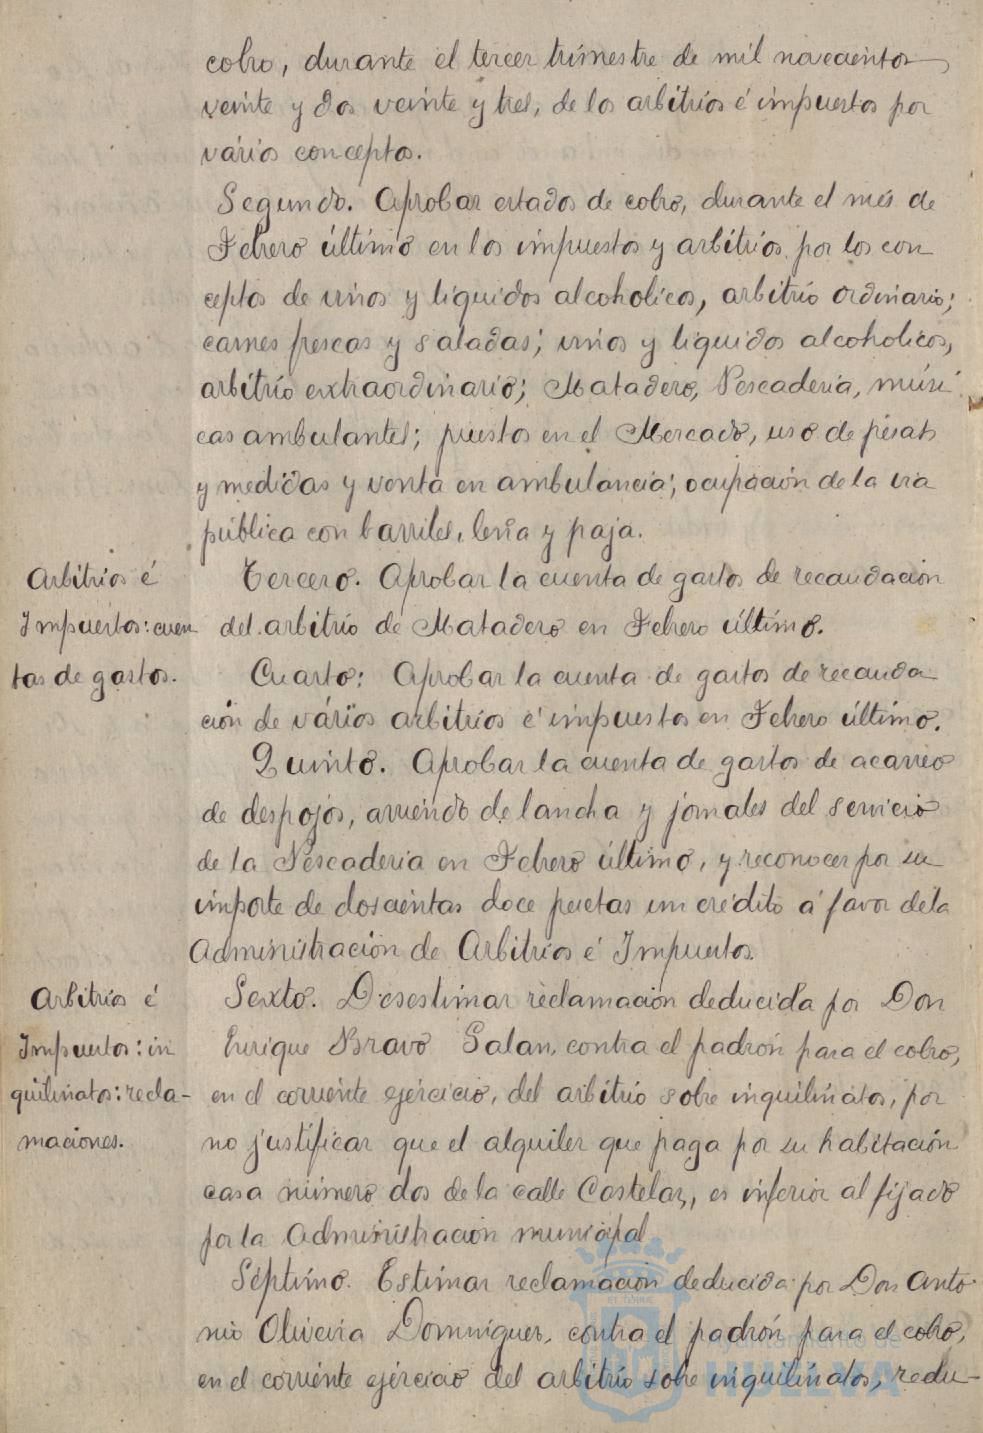 cobro, durante el tercer trimestre de mil novecientos
veinte y dos veinte y tres, de los arbitrios é impuestos por
vários conceptos.
Segundo. Aprobar estados de cobro, durante el més de
Febrero último en los impuestos y arbitrios por los con
ceptos de vinos y liquidos alcoholicos, arbitrio ordinario;
carnes frescas y saladas; vinos y liquidos alcoholicos,
arbitrio extraordinario; Matadero, Pescaderia, músi
cas ambulantes; puestos en el Mercado, uso de pesas
y medidas y venta en ambulancia; ocupación de la via
pública con barriles, leña y paja.
Arbitrios é
Impuestos: cuen
tas de gastos.
Tercero. Aprobar la cuenta de gastos de recaudación
del arbitrio de Matadero en Febrero último.
Cuarto: Aprobar la cuenta de gastos de recauda
ción de várïos arbitrios é impuestos en Febrero último.
Quinto. Aprobar la cuenta de gastos de acarreo
de despojos, arriendo de lancha y jornales del servicio
de la Pescaderia en Febrero último, y reconocer por su
importe de doscientas doce pesetas un crédito á favor de la
Administración de Arbitrios é Impuestos.
Arbitrios é
Impuestos: in
quilinatos: recla-
maciones.
Sexto. Desestimar reclamación deducida por Don
Enrique Bravo Galan, contra el padrón para el cobro,
en el corriente ejercicio, del arbitrio sobre inquilinatos, por
no justificar que el alquiler que paga por su habitación
casa número dos de la calle Castelar, es inferior al fijado
por la Administración municipal
Séptimo. Estimar reclamación deducida por Don Anto
nio Oliveira Dominguez, contra el padrón para el cobro,
en el corriente ejercicio del arbitrio sobre inquilinatos, redu-
Ayuntamiento de
HUELVA